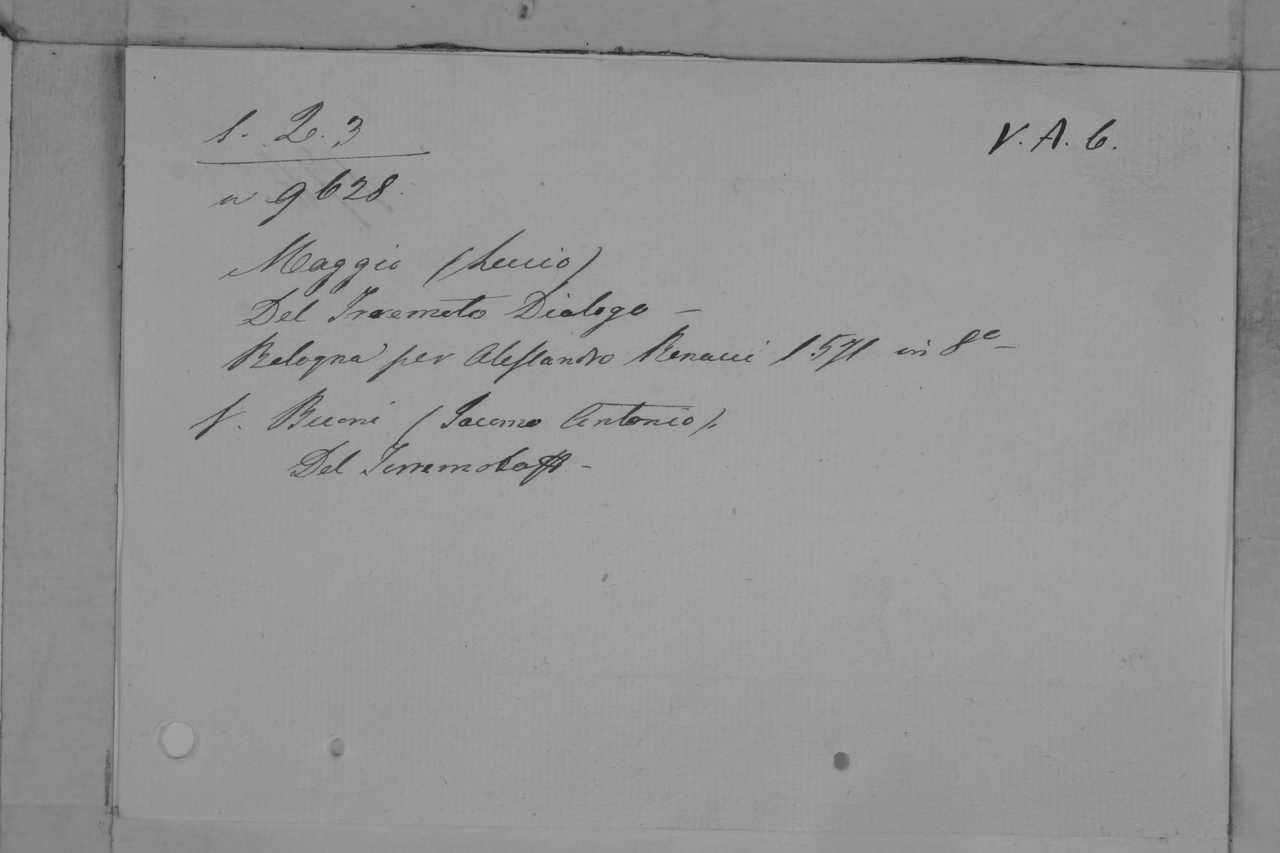 1. 2. 3
V. A. 6.
a 9628.
Maggio (Lucio)
Del Tremoto Dialogo —
Bologna per Alessandro Benacci 1571 in 8º —
V. Buoni (Jacomo Antonio).
Del Terremoto —